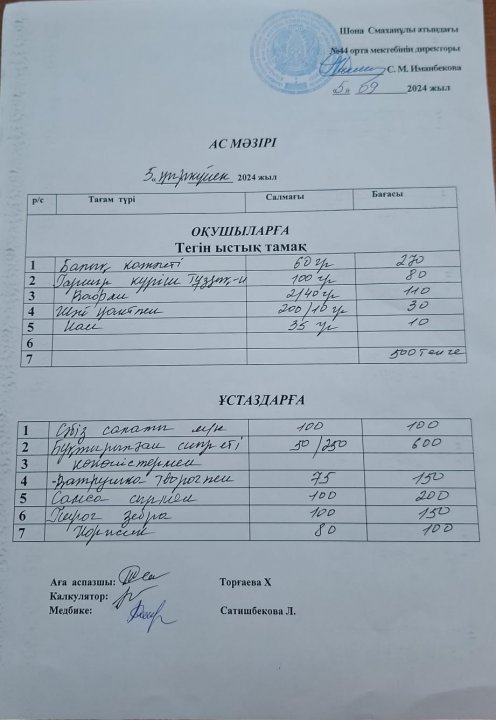 Шона Смаханұлы атындағы
№44 орта мектебінің директоры
С. М. Иманбекова
5 09 2024 жыл
АС МӘЗІРІ
5 қыркүйек 2024 жыл
р/с Тағам түрі Салмағы Бағасы
ОҚУШЫЛАРҒА
Тегін ыстық тамақ
1 Балық котлеті 60 гр 270
2 Гарнир күріш 100 гр 80
3 2/40 гр 110
4 200/10 гр 30
5 Нан 35 гр 10
6
7 500 теңге
ҰСТАЗДАРҒА
1 Сәбіз салаты 100 100
2 50/250 600
3 көкөністермен
4 Ватрушка творогпен 75 150
5 Самса 100 200
6 Пирог зебра 100 150
7 80 100
Аға аспазшы: Торғаева Х
Калкулятор:
Медбике: Сатишбекова Л.